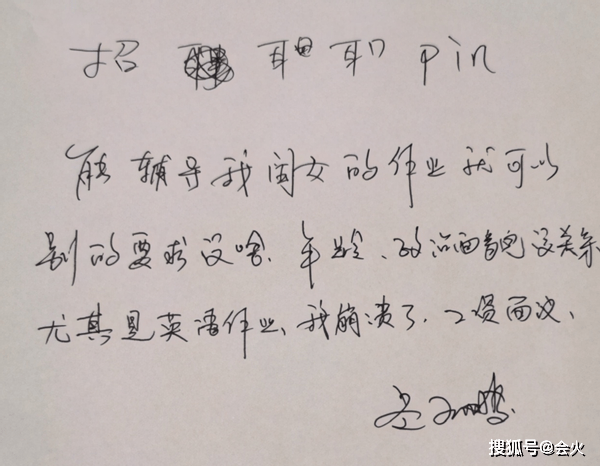 招 pin
能辅导我闺女的作业就可以
别的要求没啥.年龄、政治面貌没关系
尤其是英语作业、我崩溃了.工资面议、
搜狐号@会火